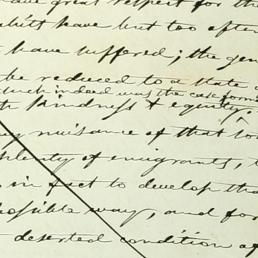 have great respect for the
have but too often
have suffered; the gen
be reduced to a state o
such indeed was the case form
th kindness & equity,
ny nuisance of that so
plenty of emigrants, t
is in fact to develop tha
possible way, and for
deserted condition of